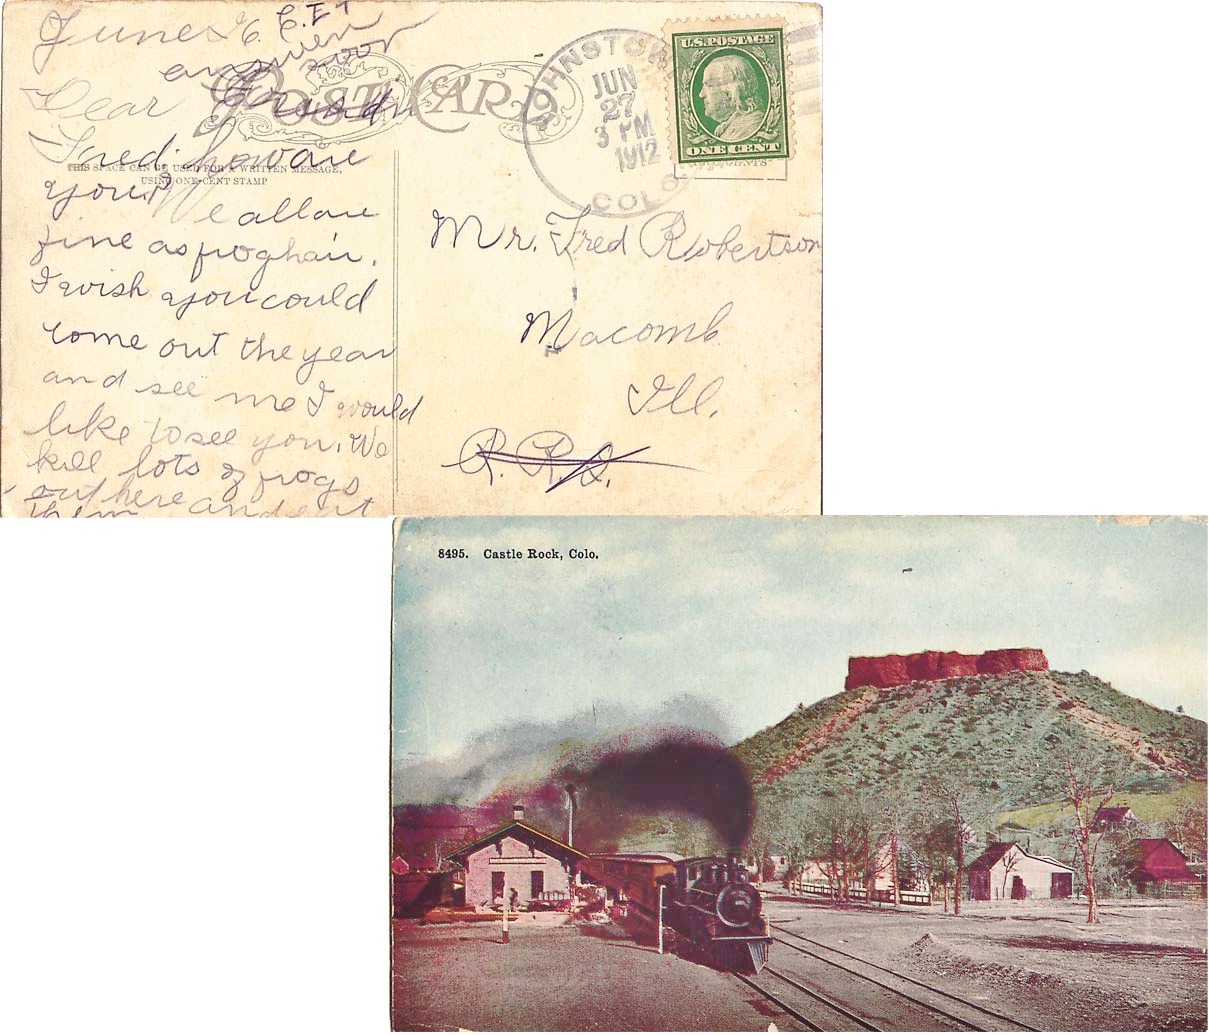 June
answer
soon
POST CARD
Dear Friend
Fred. how are
THIS SPACE CAN BE USED FOR A WRITTEN MESSAGE,
USING ONE-CENT STAMP
you. We all are
fine as frog hair.
I wish you could
come out the year
and see me I would
like to see you. We
kill lots of frogs
out here and eat
them
JOHNSTOWN
JUN
27
3 PM
1912
COLO.
U.S. POSTAGE
ONE CENT
Mr. Fred Robertson
Macomb
Ill.
8495. Castle Rock, Colo.